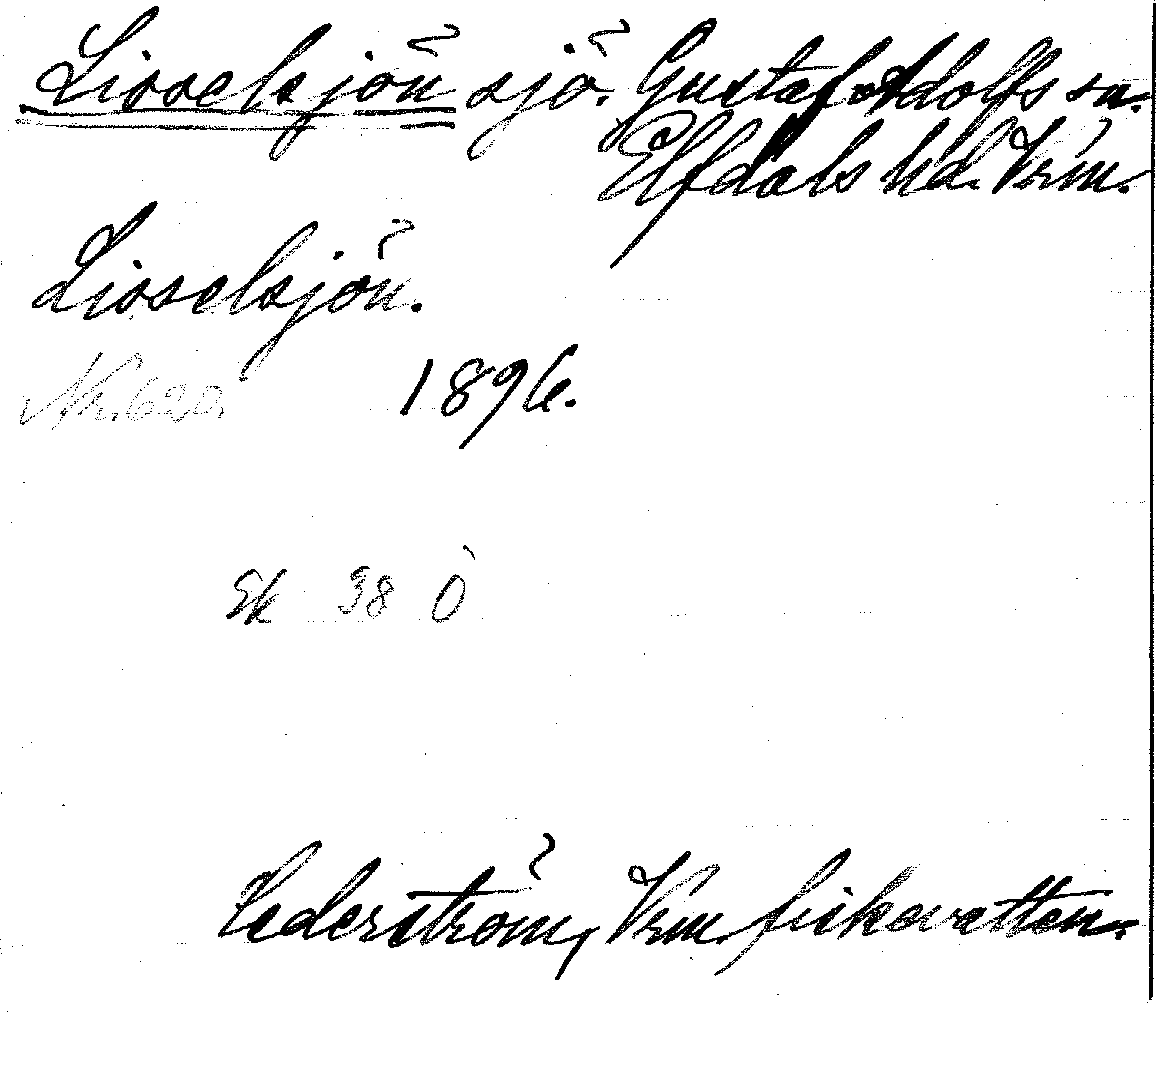 Lisselsjön sjö. Gustaf Adolfs sn.
Elfdals hd. Vrm.
Lisselsjön.
Nr. 620. 1896.
Ek 38 Ö
Cederström, Vrm. fiskevatten.